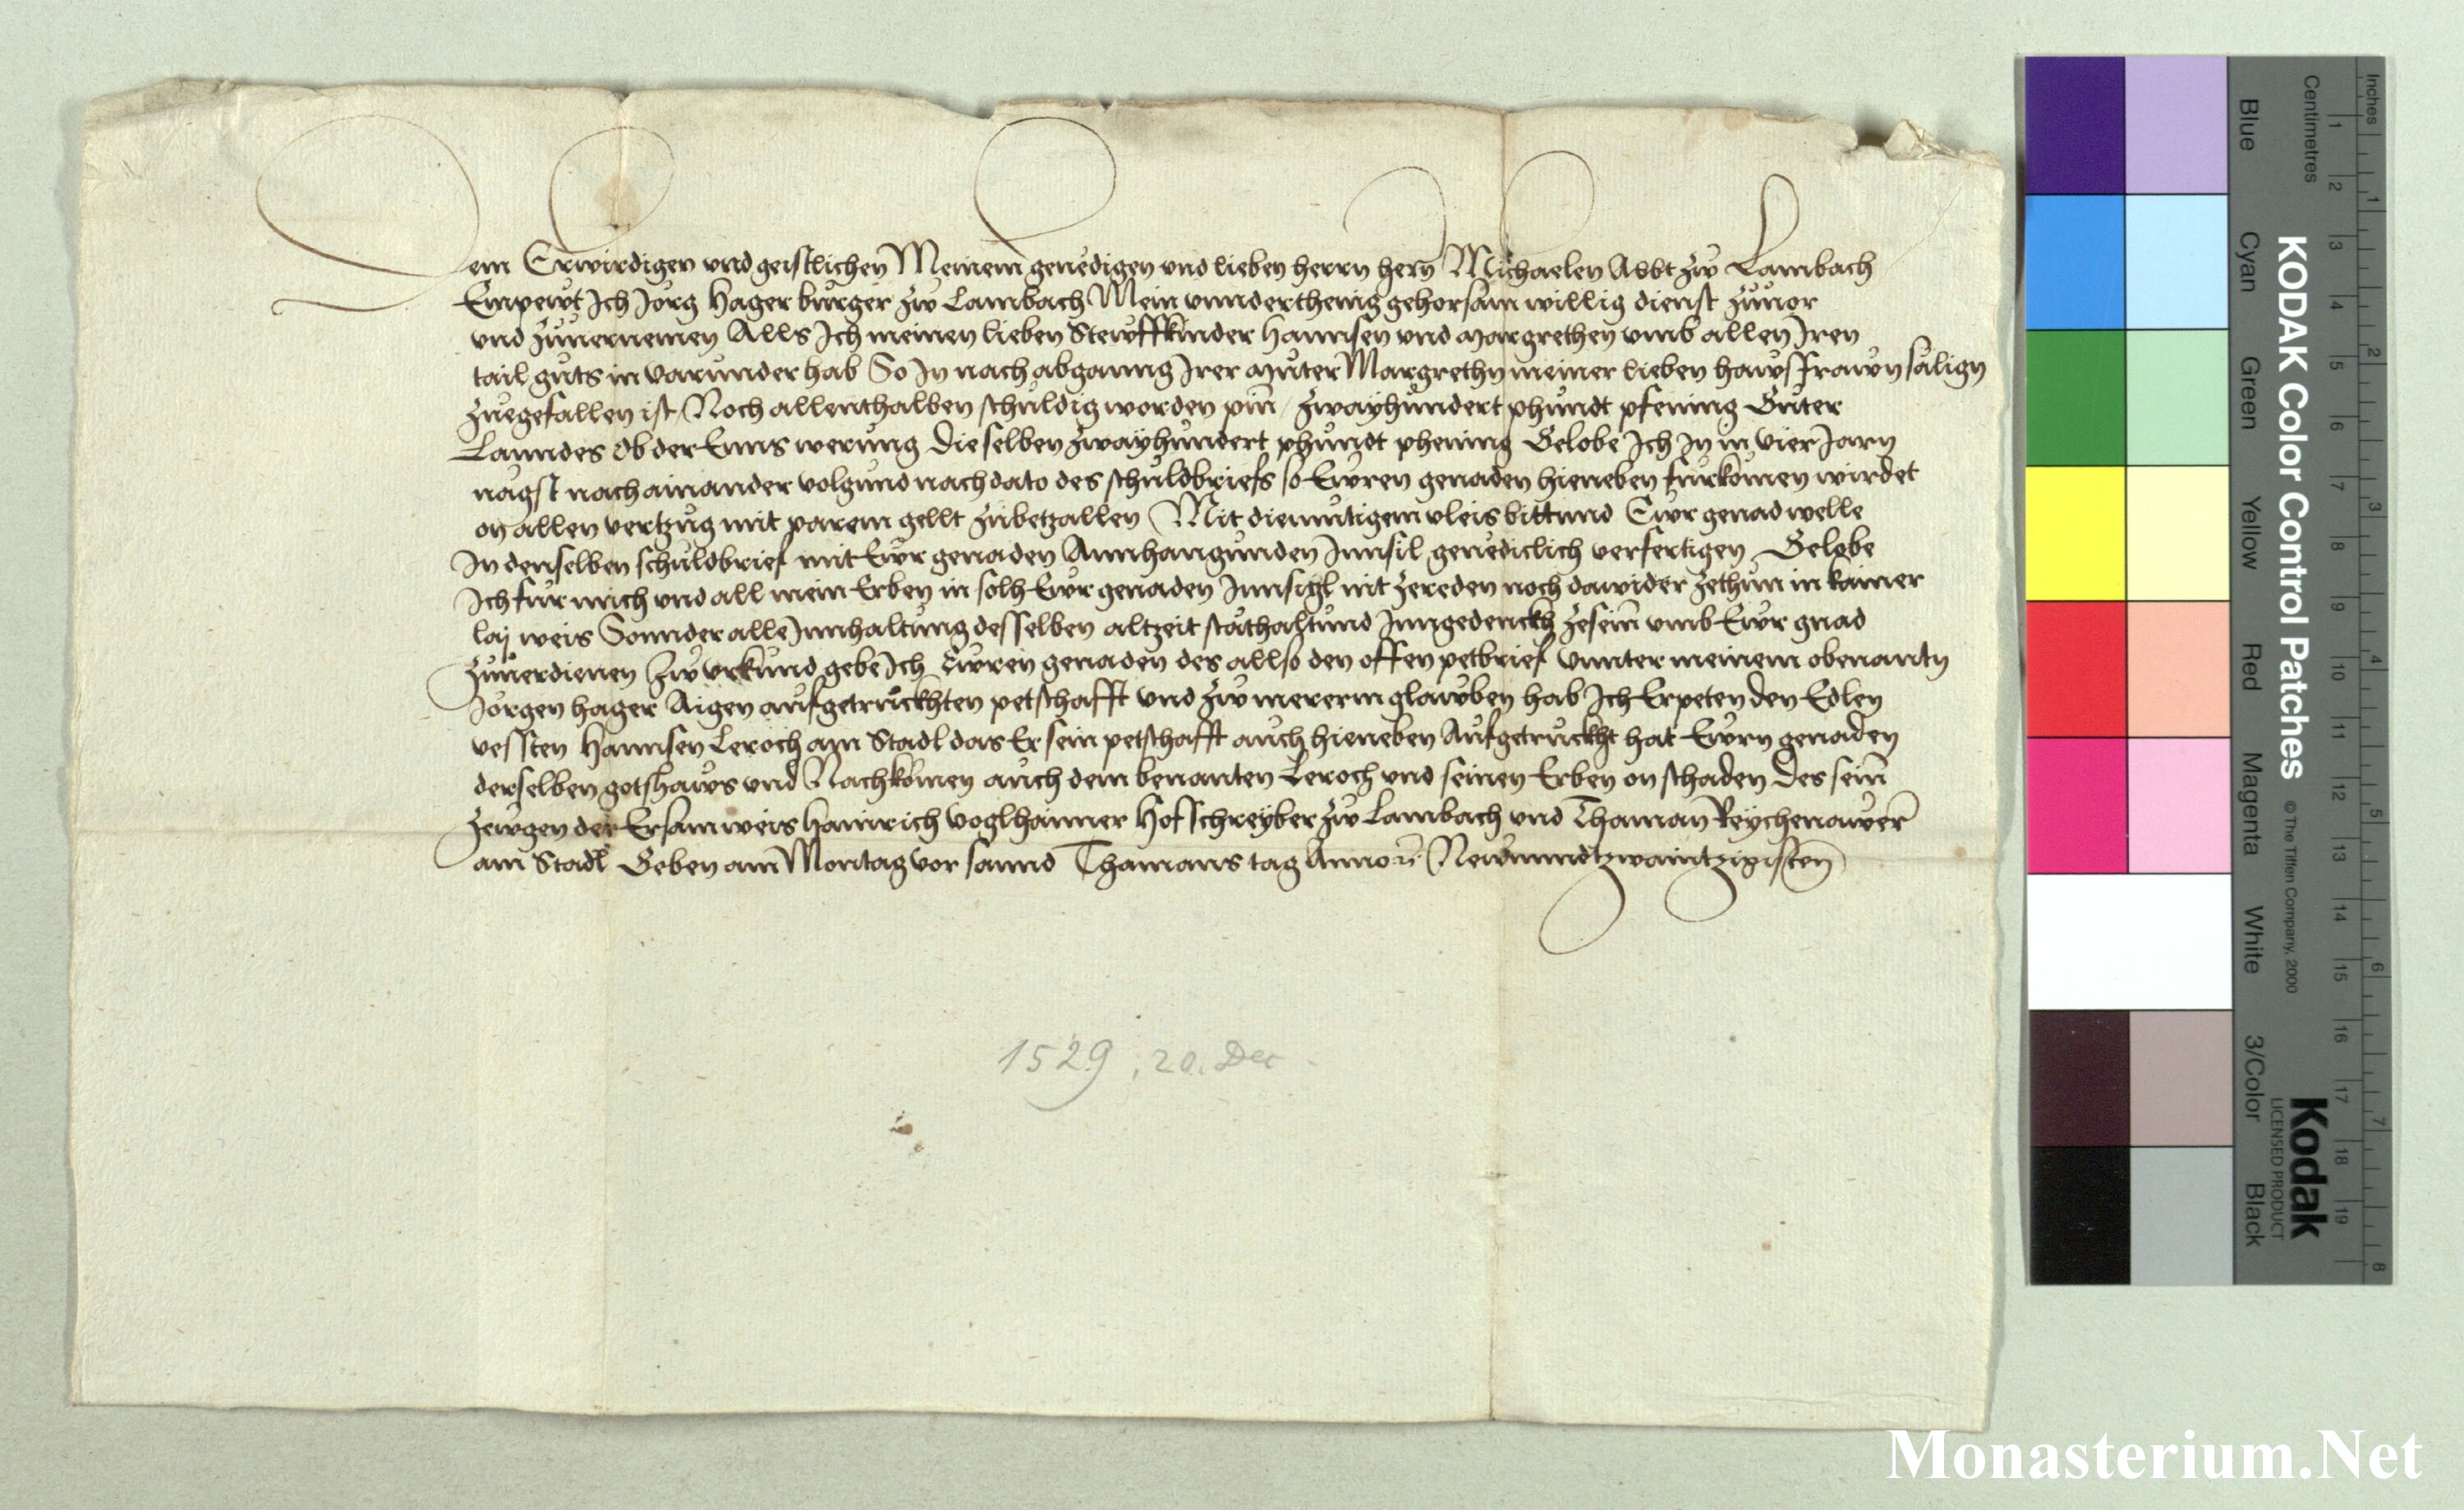 Dem Erwirdigen vnd geistlichen Meinem genedigen vnd lieben herrn hern Michaelen Abbt zw Lambach
Empewt Ich Jorg Hager burger zw Lambach Mein vnnderthenig gehorsam willig dienst zuuor
vnd zuuernemen Alls Ich meinen lieben Stewffkinder Hannsen vnd Margrethen vmb allen Iren
tail guts in varunder hab So In nach abganng Irer muter Margrethn meiner lieben hawsfrawn sälign
zuegefallen ist Noch allenthalben schuldig worden pin / zwayhundert phundt pfening Guter
Lanndes ob der Enns werung Dieselben zwayhundert phundt phening Gelobe Ich In in vier Jarn
nagst nachainander volgund nach dato des schuldbriefs so Ewren genaden hieneben furkomen wirdet
on allen vertzug mit parem gellt zubetzallen Mit diemutigem vleis bittund Ewr genad welle
In denselben schuldbrief mit Ewr genaden Annhangunden Innsil genediclich verfertigen Gelobe
Ich fur mich vnd all mein Erben in solh Ewr genaden Innsigl nit zereden noch dawider zethun in kainer
laj weis Sonnder alle Innhaltung desselben altzeit stäthaltund Inngedenckh zesein vmb Ewr gnad
zuuerdienen Zw vrkund gebe Ich Ewren genaden des allso den offen petbrief vnnter meinem obenantn
Jorgen hager Aigen aufgetruckhten petschafft vnd zw mererm glawben hab Ich Erpeten den Edlen
vessten Hannsen Leroch am Stadl das Er sein petschafft auch hieneben Aufgetruckht hat Ewrn genaden
derselben gotshaws vnd Nachkomen auch dem benanten Leroch vnd seinen Erben on schaden Des sein
zewgen der Ersam weis Hainrich Voglhaimer Hofschreyber zw Lambach vnd Thaman Reychenawer
am Stadl Geben am Montag vor sannd Thamans tag Anno Newnundtzwaintzigisten
1529, 20. Dec
KODAK Color Control Patches
© The Tiffen Company, 2000
Kodak
LICENSED PRODUCT
Inches
1 2 3 4 5 6 7 8
Centimetres
1 2 3 4 5 6 7 8 9 10 11 12 13 14 15 16 17 18 19
Blue
Cyan
Green
Yellow
Red
Magenta
White
3/Color
Black
Monasterium.Net